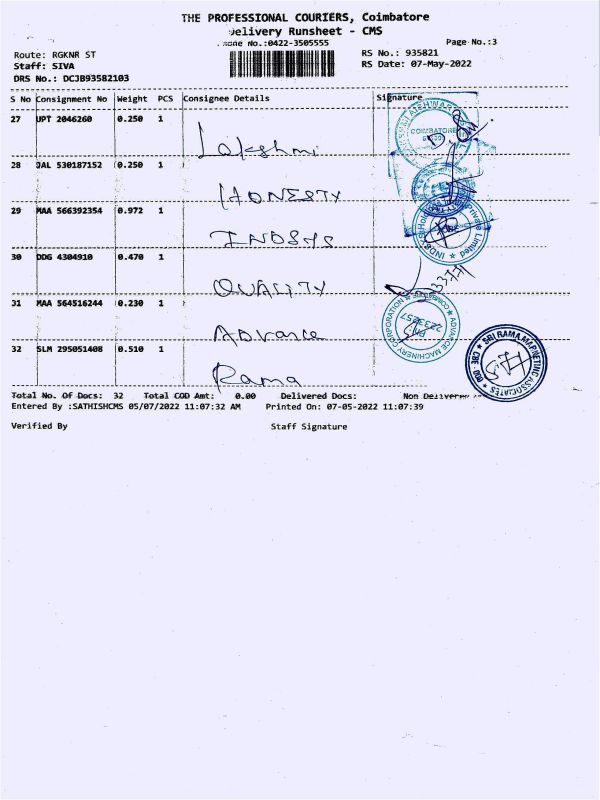 THE PROFESSIONAL COURIERS, Coimbatore
Delivery Runsheet - CMS
No.:0422-3505555
Page No.:3
Route: RGKNR ST
RS No.: 935821
Staff: SIVA
RS Date: 07-May-2022
DRS No.: DCJB93582103
S No Consignment No Weight PCS Consignee Details Signature
27 UPT 2046260 0.250 1
Lakshmi
COIMBATORE
28 JAL 530187152 0.250 1
HONESTY
29 MAA 566392354 0.972 1
INDSYS
30 DDG 4304910 0.470 1
QUALITY
31 MAA 564516244 0.230 1
Advance
ADVANCE MACHINERY CORPORATION ★ COIMBATORE ★
PH: 2233257
32 SLM 295051408 0.510 1
Rama
★ SRI RAMA MARKETING ASSOCIATES ★ CBE
Total No. Of Docs: 32 Total COD Amt: 0.00 Delivered Docs: Non
Entered By :SATHISHCMS 05/07/2022 11:07:32 AM Printed On: 07-05-2022 11:07:39
Verified By Staff Signature